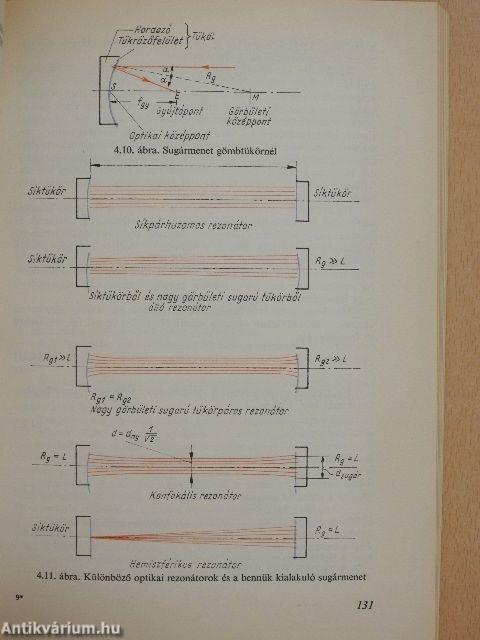 Hordozó
Tükrözőfelület } Tükör
α
α
Rg
S
E
M
fgy
Gyűjtőpont
Görbületi
középpont
Optikai középpont
4.10. ábra. Sugármenet gömbtükörnél
Síktükör
Síktükör
Síkpárhuzamos rezonátor
Síktükör
Rg ≫ L
Síktükörből és nagy görbületi sugarú tükörből
álló rezonátor
Rg1 ≫ L
Rg2 ≫ L
Rg1 = Rg2
Nagy görbületi sugarú tükörpáros rezonátor
Rg = L
Rg = L
dsugár
Konfokális rezonátor
Síktükör
Rg = L
Hemiszférikus rezonátor
4.11. ábra. Különböző optikai rezonátorok és a bennük kialakuló sugármenet
9*
131
Antikvárium.hu